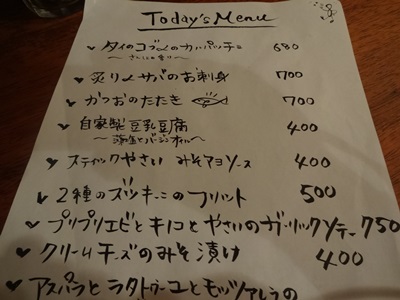 Today's Menu
タイのコブ〆のカルパッチョ 680
炙り〆サバのお刺身 700
かつおのたたき 700
自家製豆乳豆腐 400
スティックやさい みそマヨソース 400
2種のズッキーニのフリット 500
プリプリエビとキノコとやさいのガーリックソテー 750
クリームチーズのみそ漬け 400
アスパラとラタトゥーユとモッツァレラの